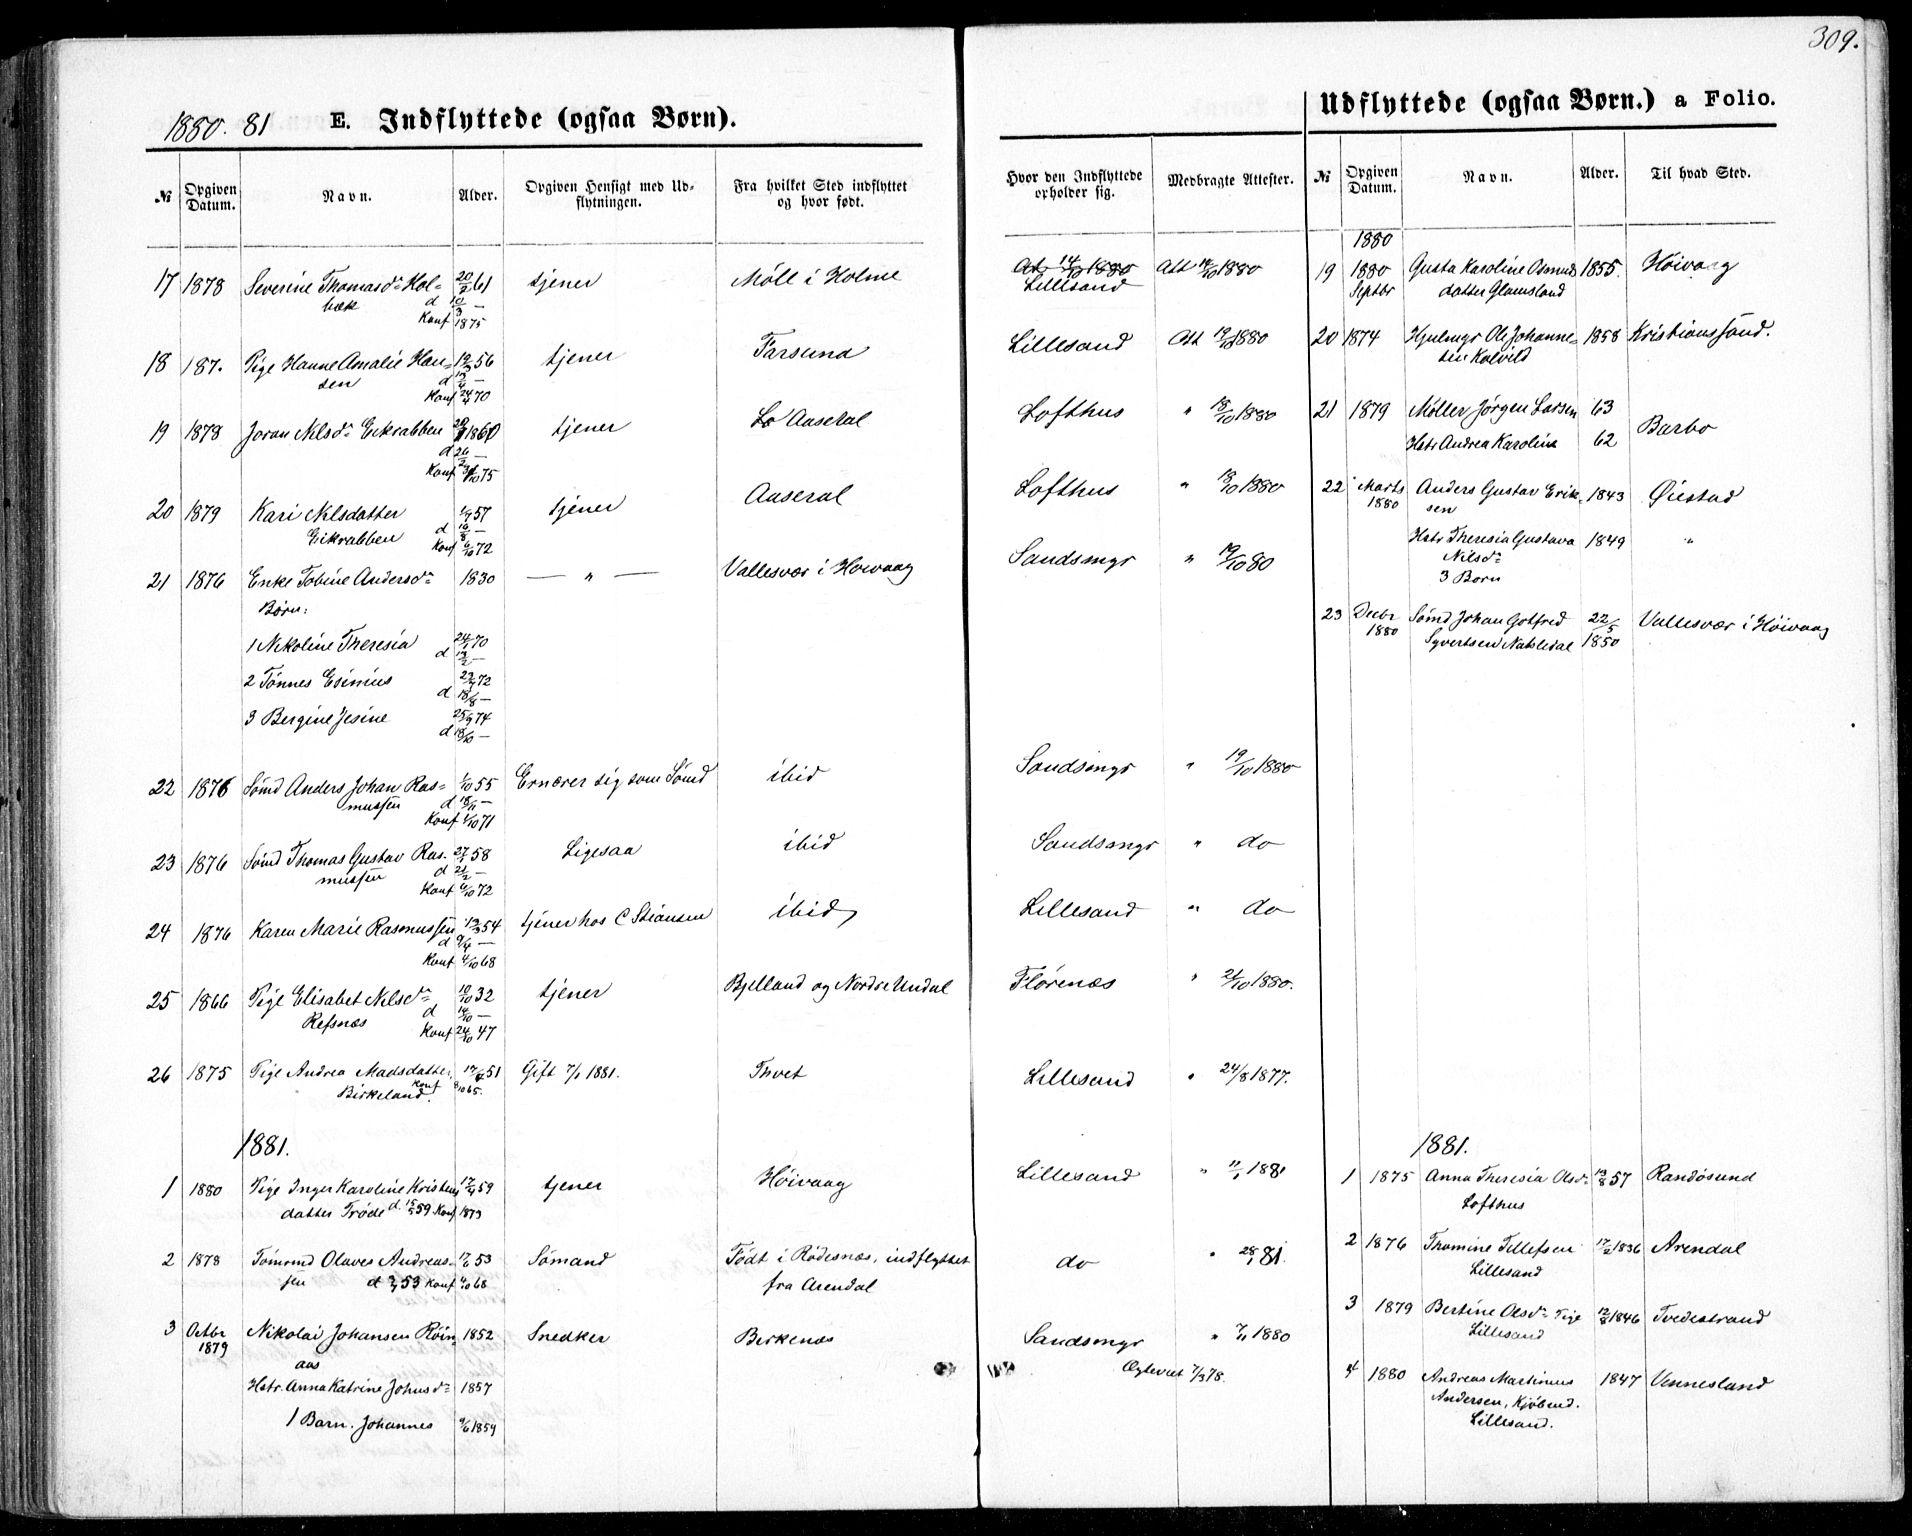 309.
1880. 81 E. Indflyttede (ogsaa Børn).
Udflyttede (ogsaa Børn.) a Folio.
№ Opgiven Datum. Navn. Alder. Opgiven Hensigt med Udflytningen. Fra hvilket Sted indflyttet og hvor født. Hvor den Indflyttede opholder sig. Medbragte Attester.
17 1878 Severine Thomasdr Hol= 20/2 61 tjener Möll i Holme At. 14/10 1880 Att 14/10 1880
bæk d 10/3 — Lillesand
Konf 1875
18 187. Pige Hanne Amalie Han= 19/3 56 tjener Farsund Lillesand Att 19/10 1880
sen d —
Konf 24/4 70
19 1878 Joran Nilsdr Eikrabben 1860 tjener Aaseral Lofthus " 18/10 1880
d 26/2
Konf 75
20 1879 Kari Nilsdatter 57 tjener Aaseral Lofthus " 18/10 1880
Eikrabben d 16/8 —
Konf 6/10 72
21 1876 Enke Tobine Andersdr 1830 — " — Vallesvær i Høivaag Sandsmyr " 19/10 80
Børn:
1 Nikoline Theresia 24/1 70
d 13/2 —
2 Tönnes Esinius 72
d 18/8 —
3 Bergine Jesine 25/9 74
d 18/10 —
22 1876 Sømd Anders Johan Ras= 1/10 55 Ernærer sig som Sømd ibid Sandsmyr " 19/10 1880
mussen d 18/11 —
Konf 1/10 71
23 1876 Sømd Thomas Gustav Ras. 27/1 58 Ligesaa ibid Sandsmyr " do
mussen d 21/2 —
Konf 6/10 72
24 1876 Karen Marie Rasmussen 19/3 54 tjener hos C Stiansen ibid Lillesand " do
d 9/4 —
Konf 4/10 68
25 1866 Pige Elisabet Nilsdr 10/10 32 tjener Bjelland og Nordre Undal Flörenæs " 21/10 1880.
Refsnæs d 14/10 —
Konf 24/10 47
26 1875 Pige Andrea Madsdatter 17/4 51 Gift 7/1 1881. Thvet Lillesand " 24/8 1877.
Birkeland. Konf 8/10 65.
1881.
1 1880 Pige Inger Karoline Kristens 17/4 59 tjener Höivaag Lillesand " 11/1 1881
datter Tröde d. 15/5 59 Konf 1873
2 1878 Tömrmd Olaves Andreas= 17/6 53 Sömand Födt i Rödesnæs, indflyttet do " 28/1 81.
sen d 53 Konf 4/10 68 fra Arendal
3 Octbr 1879 Nikolai Johansen Röin 1852 Snedker Birkenæs Sandsmyr " 7/11 1880
aas Ægteviet 7/3 78.
Hstr. Anna Katrine Johnsdr 1857
1 Barn. Johannes 9/6 1859
№ Opgiven Datum. Navn. Alder. Til hvad Sted.
1880
19 1880 Septbr Gusta Karoline Osmunds 1855. Höivaag
datter Glamsland
20 1874 Hjulmgr Ole Johanne= 1858 Kristianssand.
sen Kalvild
21 1879 Møller Jørgen Larsen 63 Barbo
Hstr Andrea Karoline 62
22 Marts 1880 Anders Gustav Erik 1843 Øiestad
sen
Hstr Theresia Gustava 1849 "
Nilsdr
3 Born
23 Decbr 1880 Sømd Johan Gotfred 22/5 1850 Vallesvær i Höivaag
Syvertsen Natsledal
1881.
1 1875 Anna Theresia Olsdr 13/8 57 Randøsund
Lofthus
2 1876 Thomine Tellefsen 17/2 1836 Arendal
Lillesand
3 1879 Bertine Olsdr Pige 1846 Tvedestrand
Lillesand
4 1880 Andreas Martinius 1847 Vennesland
Andersen, Kjøbmd.
Lillesand.